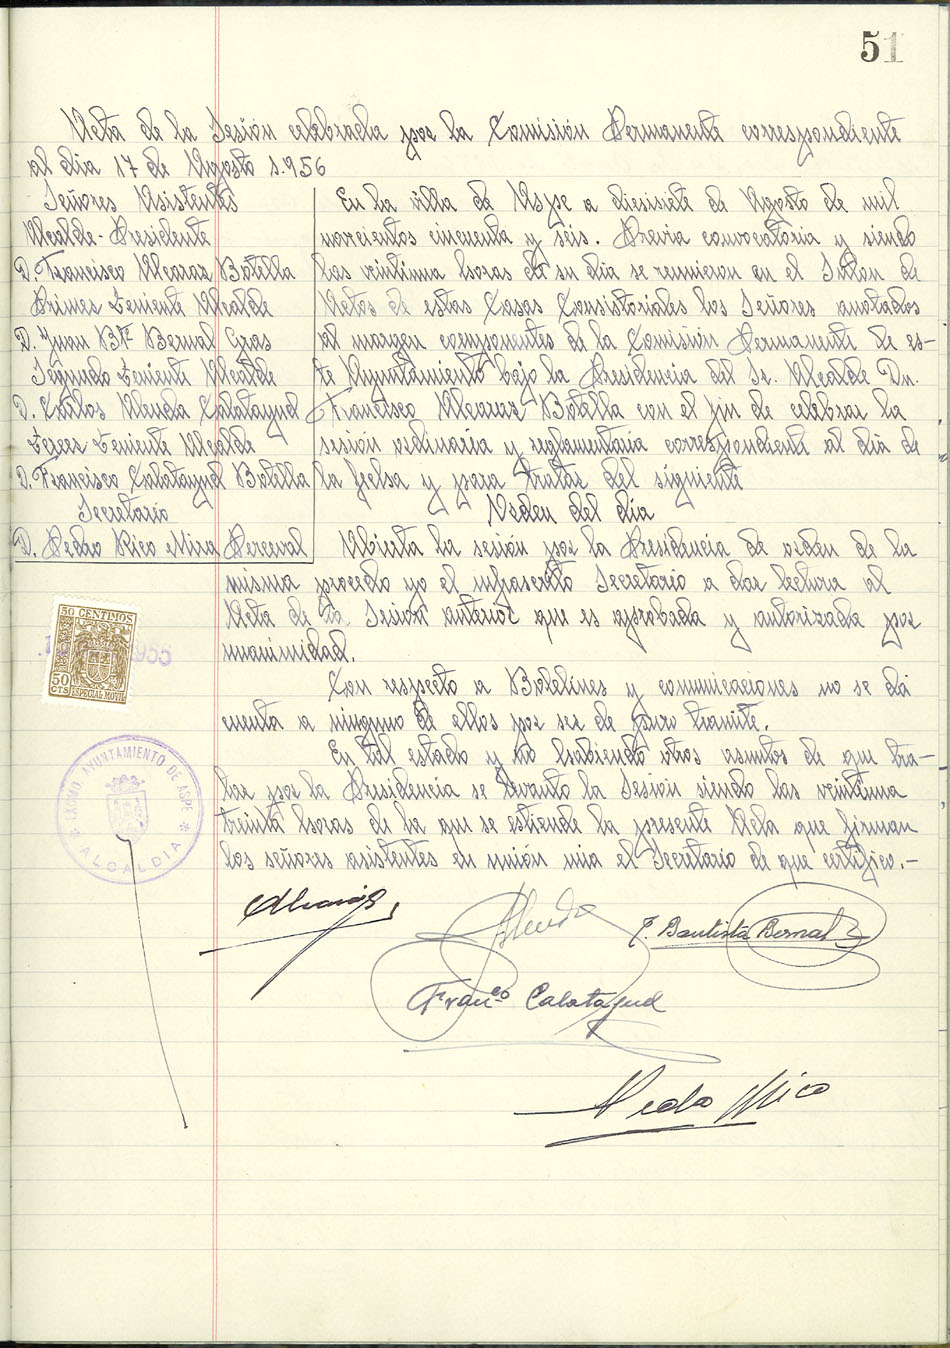 51
Acta de la Sesión celebrada por la Comisión Permanente correspondiente
al dia 17 de Agosto 1.956
Señores Asistentes
Alcalde-Presidente
D. Francisco Alcaraz Botella
Primer Teniente Alcalde
D. Juan Btª Bernal Cras
Segundo Teniente Alcalde
D. Carlos Alenda Calatayud
Tercer Teniente Alcalde
D. Francisco Calatayud Botella
Secretario
D. Pedro Rico Mira Perceval
En la villa de Aspe a diesisiete de Agosto de mil
novcientos cincuenta y seis. Previa convocatoria y siendo
las vintiuna horas de su dia se reunieron en el Salon de
Actos de estas Casas Consistoriales los Señores anotados
al margen componentes de la Comisión Permanente de es-
te Ayuntamiento bajo la Presidencia del Sr. Alcalde Dn.
Francisco Alcaraz Botella con el fin de celebrar la
sesión ordinaria y reglamentaria correspondiente al dia de
la fecha y para tratar del siguiente
Orden del dia
Abierta la sesión por la Presidencia de orden de la
misma procedo yo el infrascrito Secretario a dar lectura al
Acta de la Sesión anterior que es aprobada y autorizada por
unanimidad.
Con respecto a Boletines y comunicaciones no se da
cuenta a ninguno de ellos por ser de puro tramite.
En tal estado y no habiendo otros asuntos de que tra-
tar por la Presidencia se levanto la Sesión siendo las vintiuna
treinta horas de la que se estiende la presente Acta que firman
los señores asistentes en unión mia el Secretario de que certifico.-
50 CENTIMOS
50 CTS
ESPECIAL MOVIL
1955
EXCMO. AYUNTAMIENTO DE ASPE
* ALCALDIA *
Alcaraz
Alenda
J. Bautista Bernal
Franco Calatayud
Pedro Rico